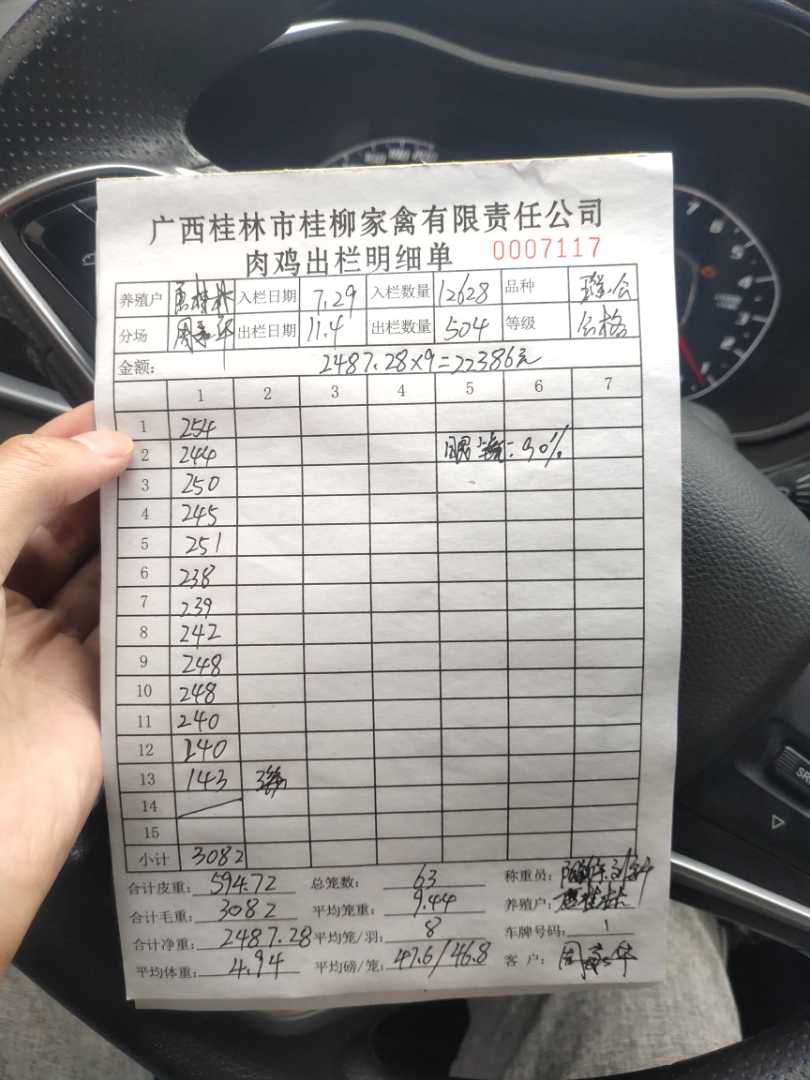 广西桂林市桂柳家禽有限责任公司
肉鸡出栏明细单 0007117
养殖户 入栏日期 7.29 入栏数量 12628 品种
分场 出栏日期 11.4 出栏数量 504 等级 合格
金额: 2487.28×9=22386元
1 2 3 4 5 6 7
1 254
2 244 :90%
3 250
4 245
5 251
6 238
7 239
8 242
9 248
10 248
11 240
12 240
13 143
14
15
小计 3082
合计皮重: 594.72 总笼数: 63 称重员:
合计毛重: 3082 平均笼重: 9.44 养殖户:
合计净重: 2487.28 平均笼/羽: 8 车牌号码: 1
平均体重: 4.94 平均磅/笼: 47.6/46.8 客 户:
7
6
5
4
1